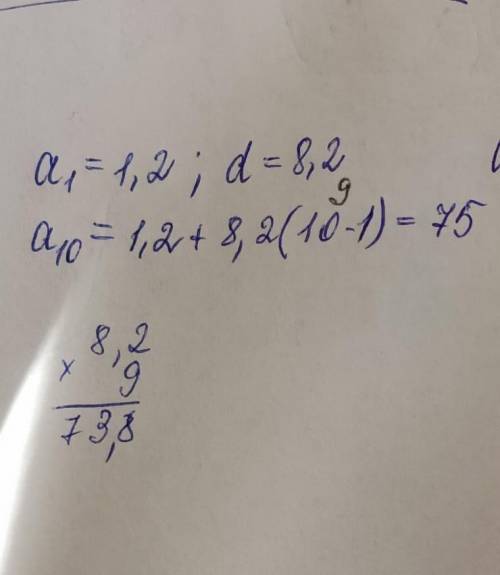 a₁ = 1,2 ; d = 8,2
9
a₁₀ = 1,2 + 8,2(10-1) = 75
8,2
× 9
73,8